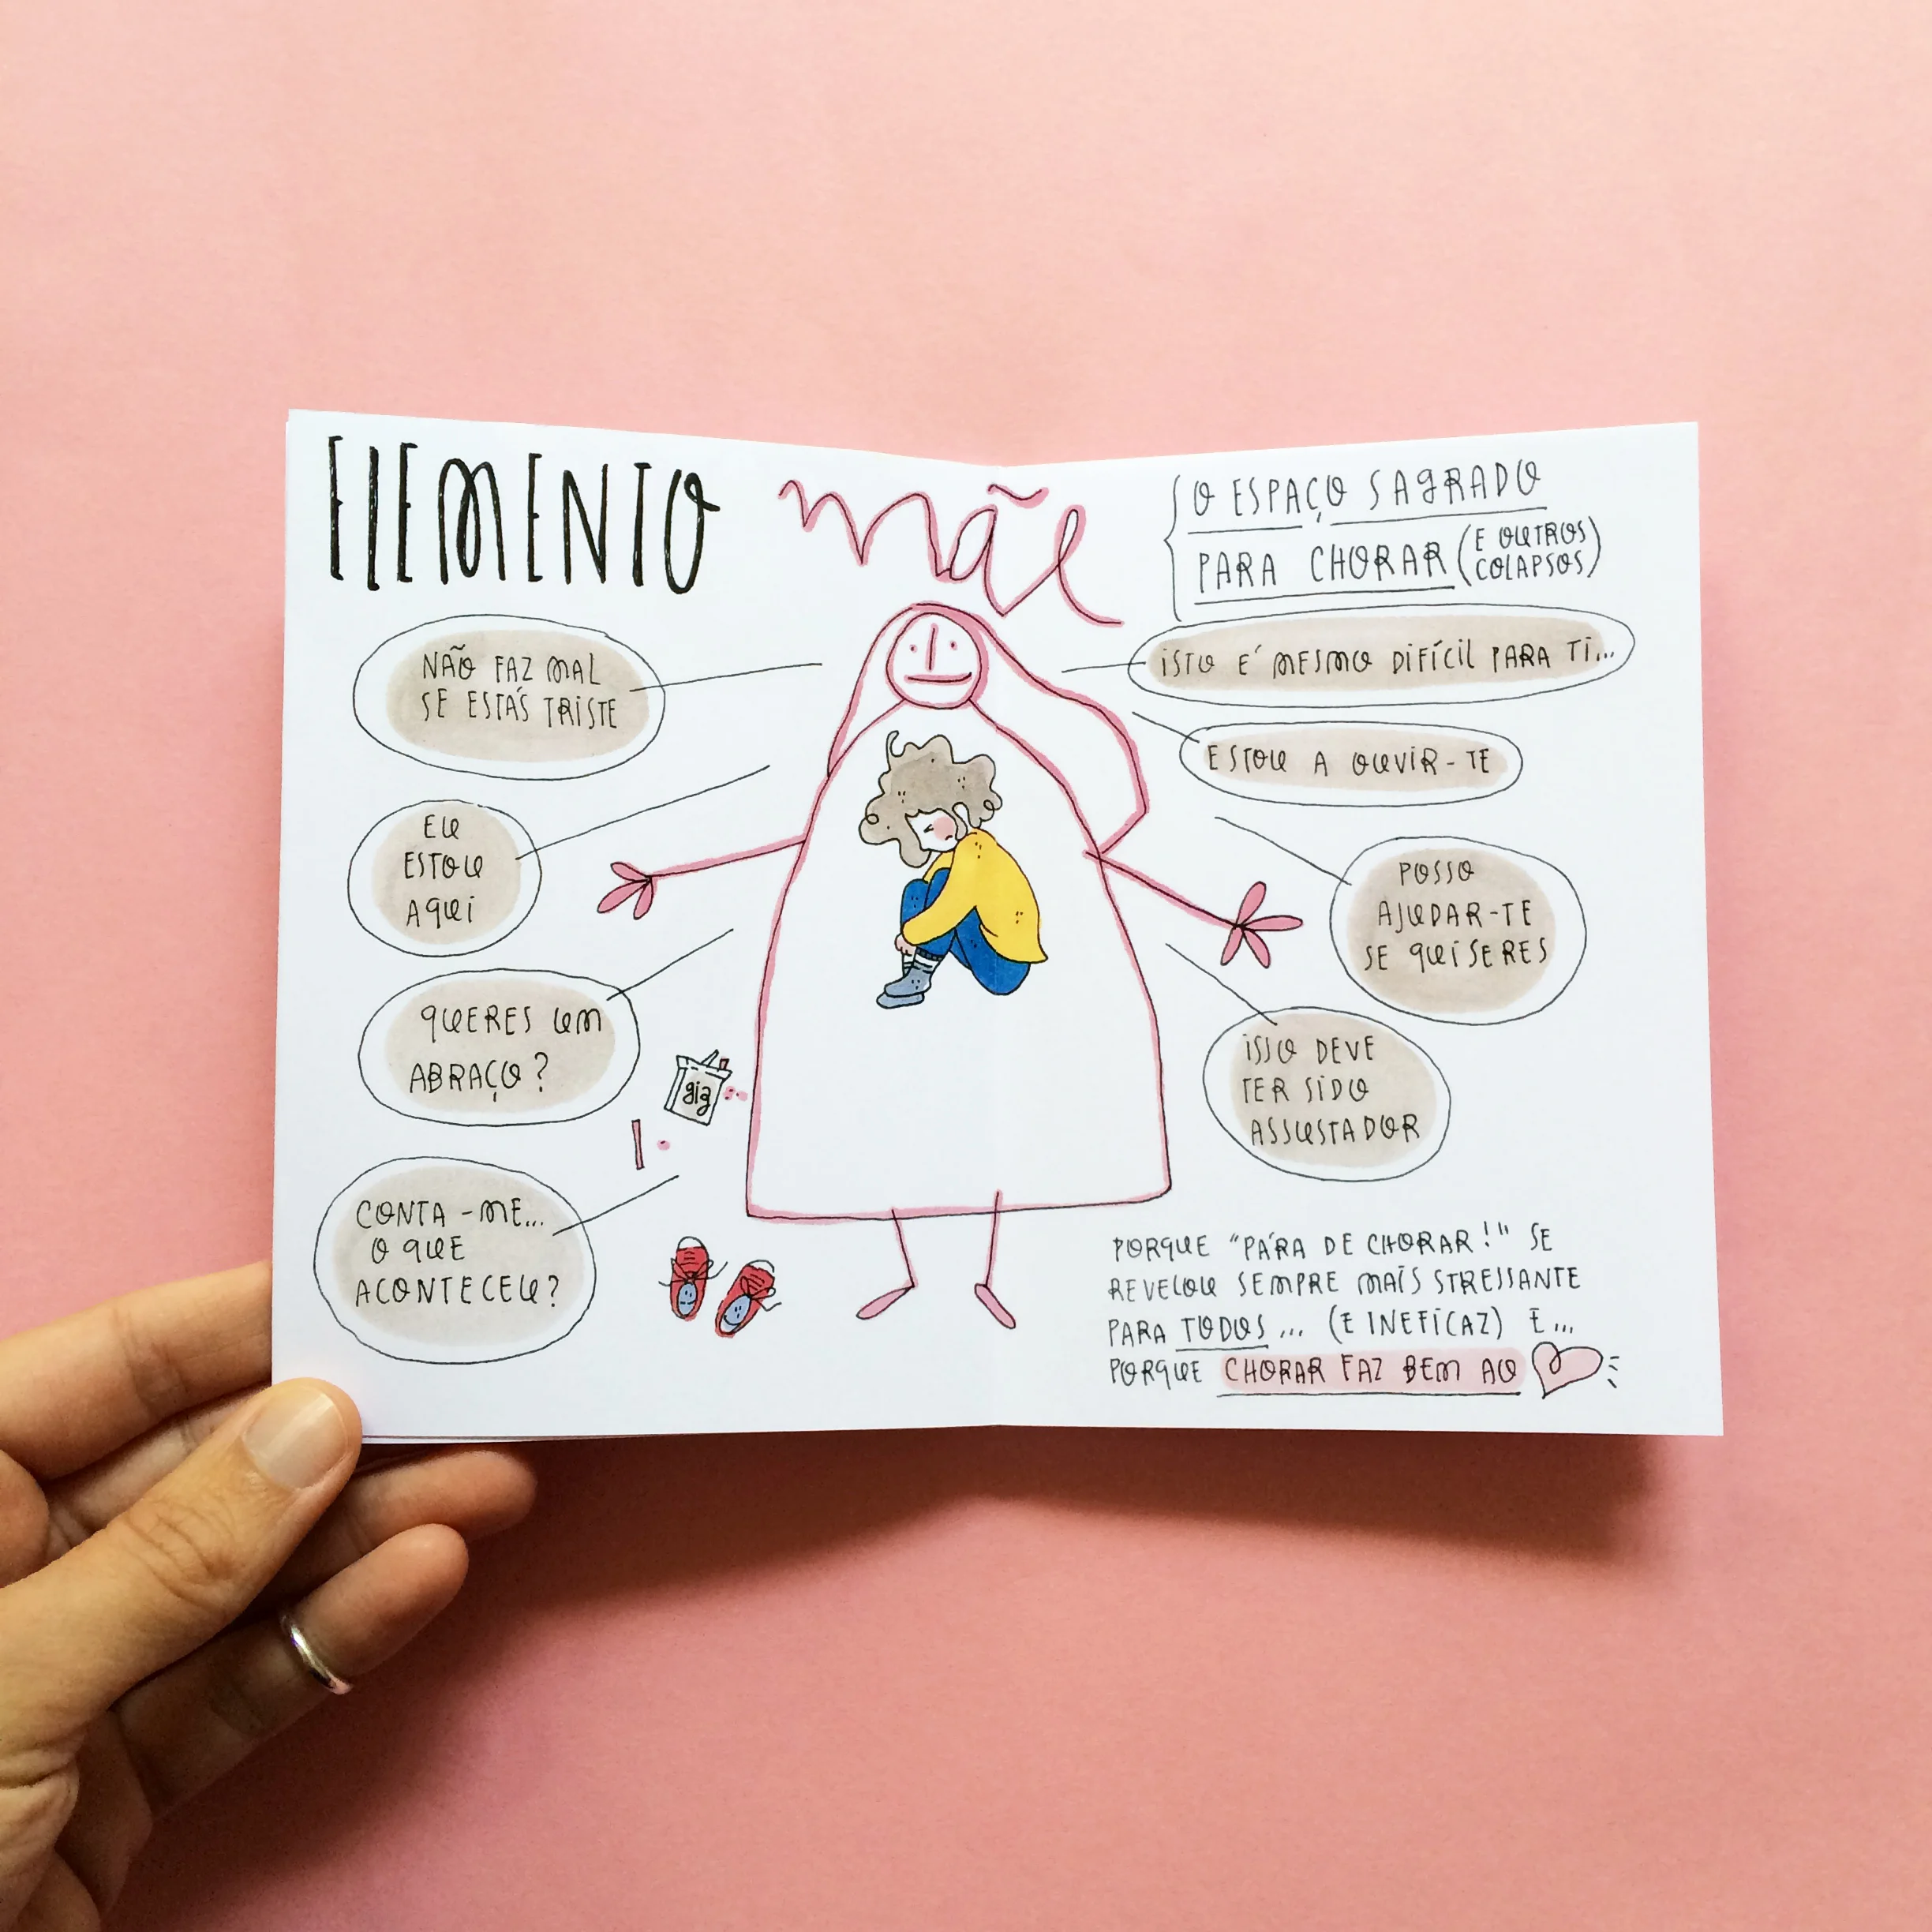 ELEMENTO
mãe
O ESPAÇO SAGRADO
PARA CHORAR (E OUTROS
COLAPSOS)
NÃO FAZ MAL
SE ESTÁS TRISTE
EU
ESTOU
AQUI
QUERES UM
ABRAÇO?
giz
CONTA-ME...
O QUE
ACONTECEU?
ISTO É MESMO DIFÍCIL PARA TI...
ESTOU A OUVIR-TE
POSSO
AJUDAR-TE
SE QUISERES
ISSO DEVE
TER SIDO
ASSUSTADOR
PORQUE "PÁRA DE CHORAR!" SE
REVELOU SEMPRE MAIS STRESSANTE
PARA TODOS... (E INEFICAZ) E...
PORQUE CHORAR FAZ BEM AO